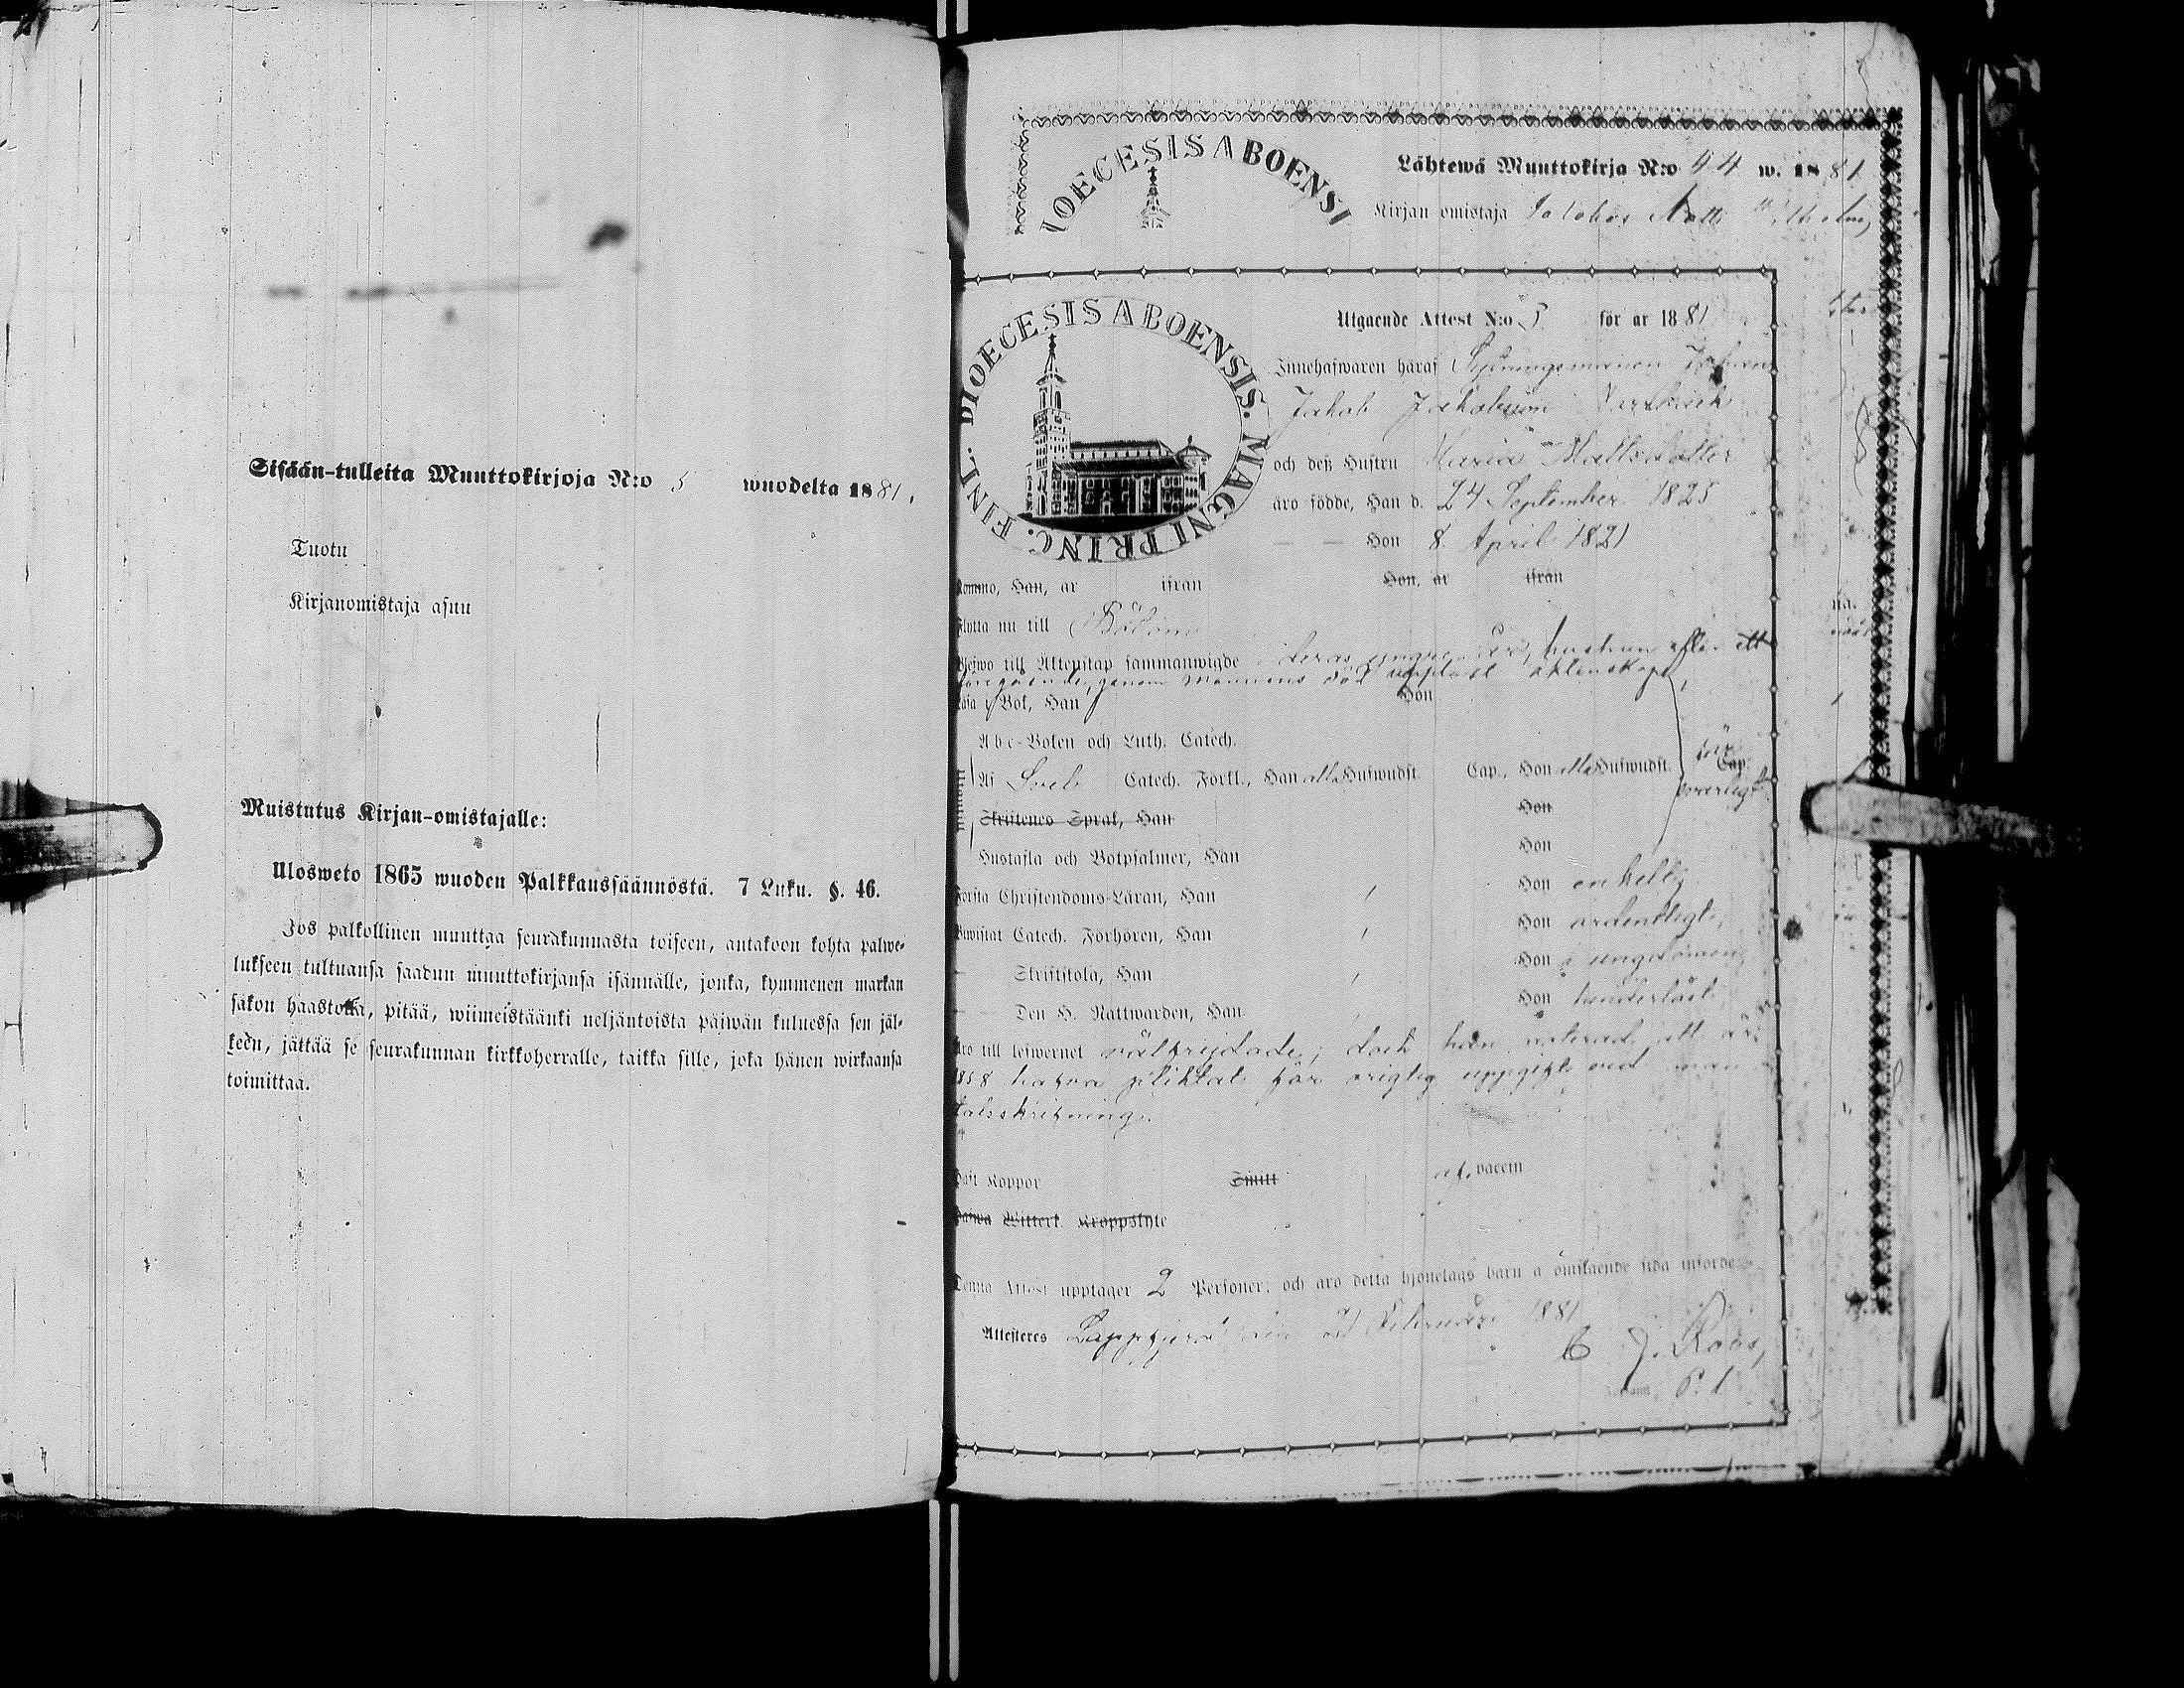 Sisään-tulleita Muuttokirjoja N:o 5 wuodelta 1881.
Tuotu
Kirjanomistaja asuu
Muistutus Kirjan-omistajalle:
Ulosweto 1865 wuoden Palkkaussäännöstä. 7 Luku. §. 46.
Jos palkollinen muuttaa seurakunnasta toiseen, antakoon kohta palwe-
lukseen tultuansa saadun muuttokirjansa isännälle, jonka, kymmenen markan
sakon haastolla, pitää, wiimeistäänki neljäntoista päiwän kuluessa sen jäl-
keen, jättää se seurakunnan kirkkoherralle, taikka sille, joka hänen wirkaansa
toimittaa.
IOECESIS ABOENSI
Lähtewä Muuttokirja N:o 44 w. 1881
Kirjan omistaja Matts
DIOECESIS ABOENSIS. MAGNI PRINC. FINL.
Utgående Attest N:o 5 för år 1881
Innehafwaren häraf Johan
Jakob Jakobsson
och deß Hustru Maria Mattsdotter
äro födde, Han d. 24 September 1825
Hon 8 April 1821
Komne, Han, år ifrån Hon, år ifrån
Flytta nu till
Blefwo till Äktenskap sammanwigde deras hustrun efter ett
föregående, genom mannens död upplöst äktenskap,
Läsa i Bok, Han Hon
Abc-Boken och Luth. Catech.
Af Sveb Catech. Förkl., Han alla Hufwudst. Cap., Hon alla Hufwudst. Cap.
Skriftenes Språk, Han Hon
Hustafla och Botpsalmer, Han Hon
Förstå Christendoms-Läran, Han Hon enkelt
Bewistat Catech. Förhören, Han Hon ordentligt
Skriftskola, Han Hon i ungdomen
Den H. Nattwarden, Han Hon
Äro till lefwernet välfrejdade; dock han noterad att år
1868 hafva pliktat för origtig uppgift vid man
talsskrifning.
Haft Koppor Smitt af vaccin
Hafwa Witterl. Kroppslyte
Denna Attest upptager 2 Personer; och äro detta hjonelags barn å omstående sida införde.
Attesteres Lappfjerd den 21 Februari 1881
J. Roos,